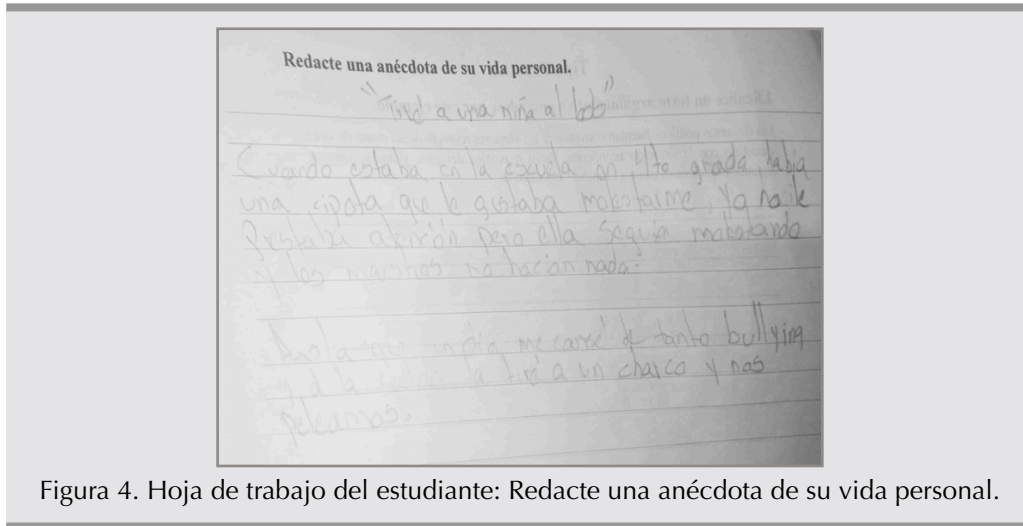 Redacte una anécdota de su vida personal.
"Tired a una niña al lodo"
Cuando estaba en la escuela en 4to grado, había
una cipota que le gustaba molestarme, Yo no le
Prestaba atención pero ella seguía molestando
y los maestros no hacían nada.
que un día me cansé de tanto bullying
y a la la tiré a un charco y nos
peleamos.
Figura 4. Hoja de trabajo del estudiante: Redacte una anécdota de su vida personal.